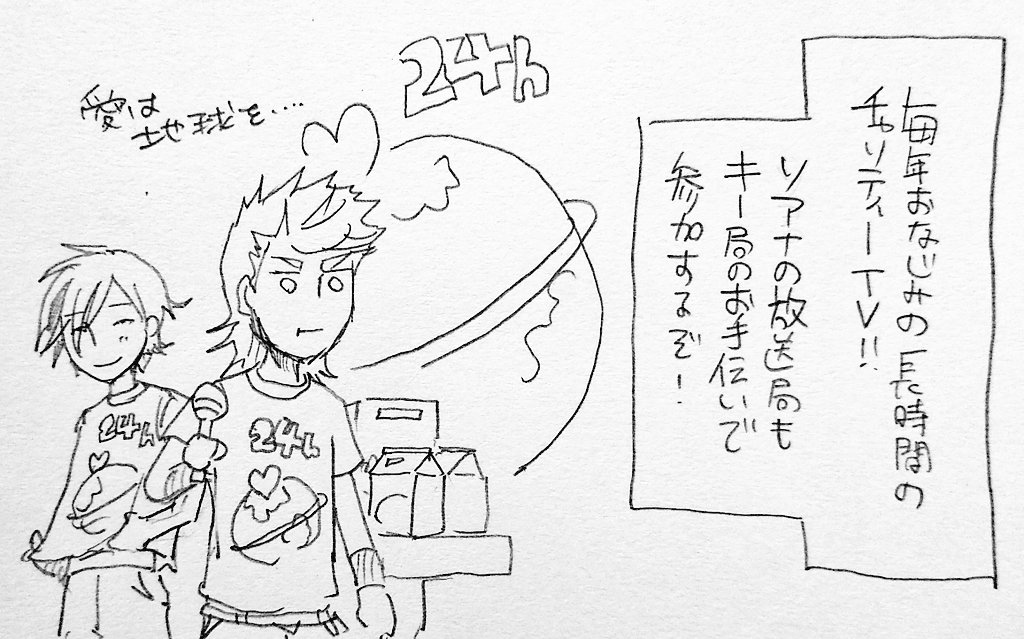 毎年おなじみの長時間の
チャリティーTV!!
ソアナの放送局も
キー局のお手伝いで
参加するぞ!
24h
愛は
地球を....
24h
24h